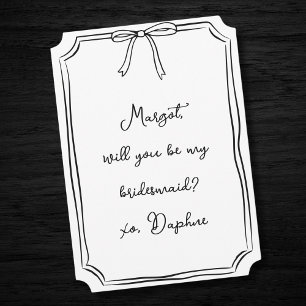 Margot,
will you be my
bridesmaid?
xo, Daphne